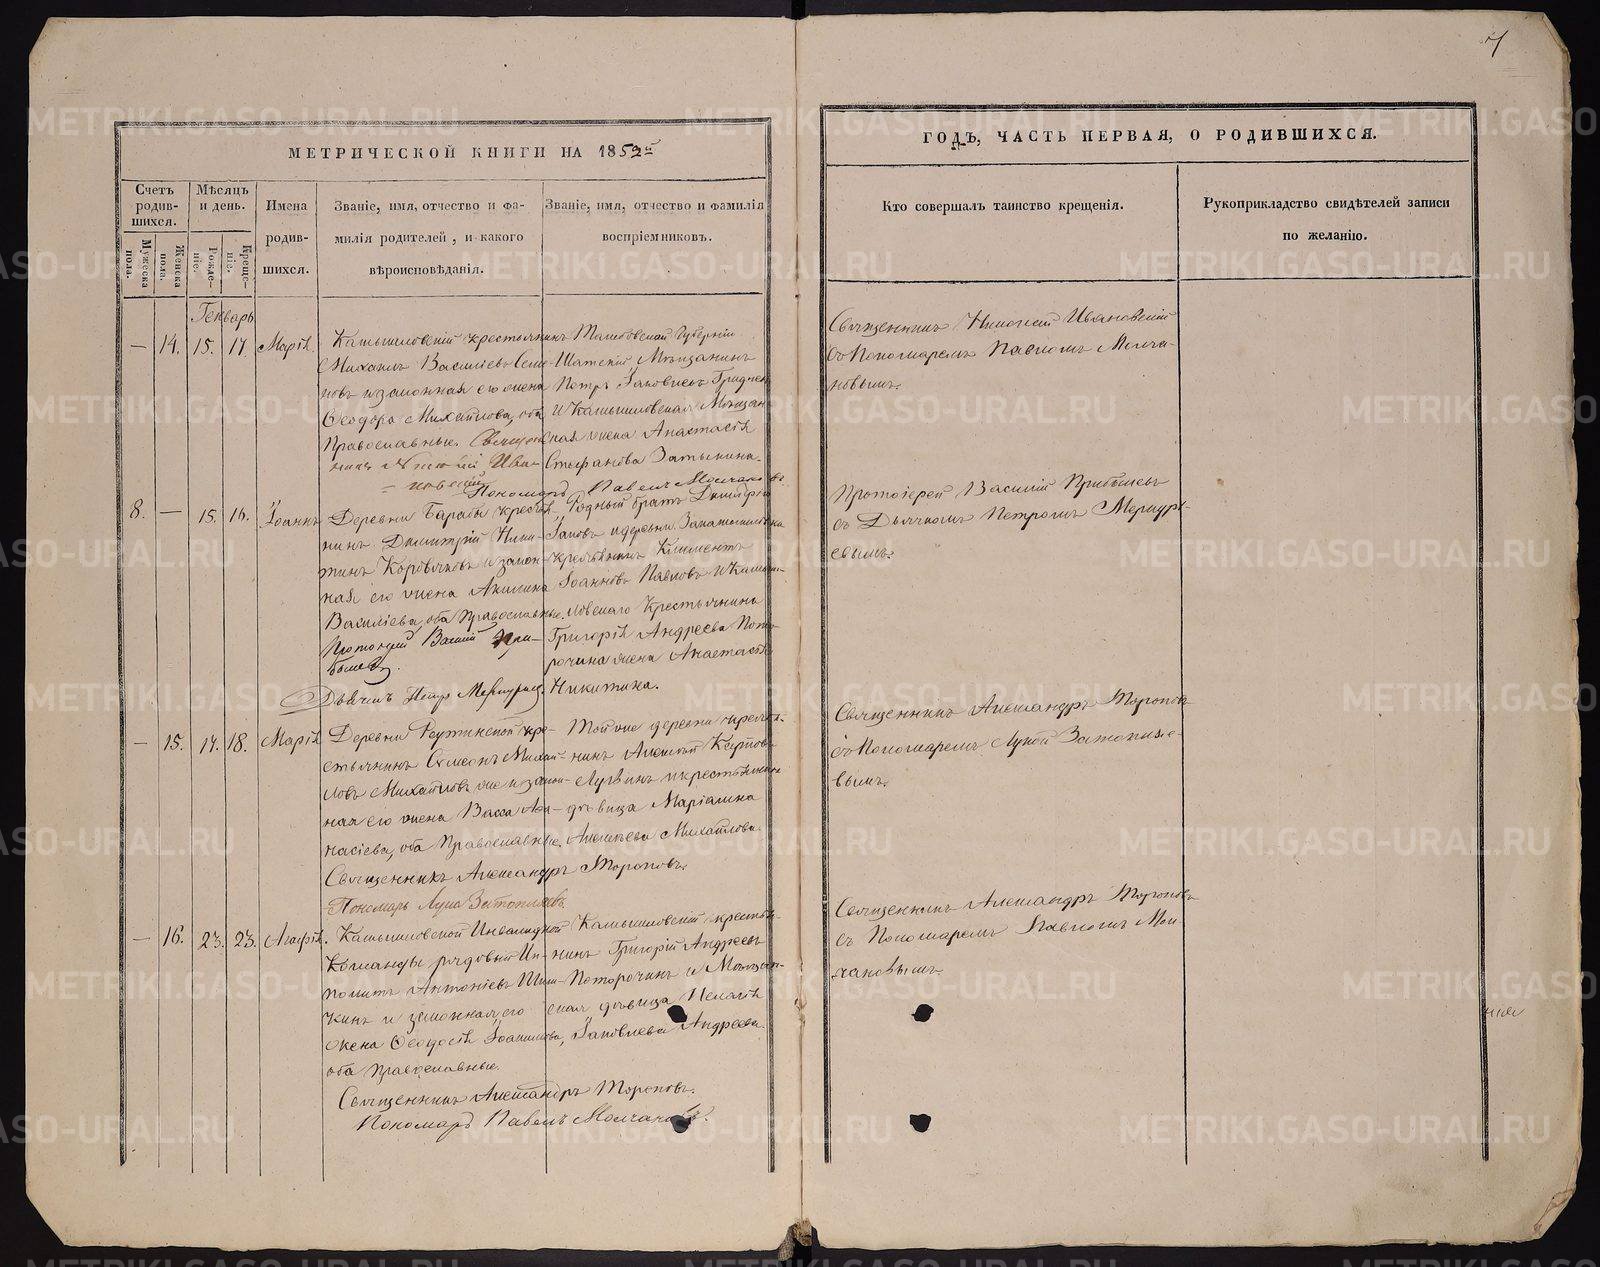 7
МЕТРИЧЕСКОЙ КНИГИ НА 1852й
ГОДЪ, ЧАСТЬ ПЕРВАЯ, О РОДИВШИХСЯ.
Счетъ родив-шихся.
Мужеска пола.
Женска пола.
Мѣсяцъ и день.
Рожде-ніе.
Креще-ніе.
Имена
родив-
шихся.
Званіе, имя, отчество и фа-
милія родителей, и какого
вѣроисповѣданія.
Званіе, имя, отчество и фамилія
воспріемниковъ.
Кто совершалъ таинство крещенія.
Рукоприкладство свидѣтелей записи
по желанію.
Генварь
— 14. 15. 17. Марія
Камышловскій крестьянинъ
Михаилъ Василіевъ
и законная его жена
Ѳеодора Михайлова, оба
Православные. Священ-
никъ Ива-
новскій
Пономарь Павелъ Молчановъ
Тамбовской Губерніи
Шатскій Мѣщанинъ
Петръ Іаковлевъ
и Камышловская Мѣщан-
ская жена Анастасія
Стефанова
Священникъ Ивановскій
съ Пономаремъ Павломъ Молча-
новымъ.
8. — 15. 16. Іоаннъ
Деревни Барабы крестья-
нинъ Димитрій Ники-
тинъ Коровяковъ и закон-
ная его жена Акилина
Василіева, оба Православные.
Протоіерей Василій При-
былевъ.
Дьячекъ Петръ
Родный братъ Димитрія
крестьянинъ Климентъ
Іоанновъ Павловъ и Камыш-
ловскаго Крестьянина
Григорія Андреева Пото-
рочина жена Анастасія
Никитина.
Протоіерей Василій Прибылевъ
съ Дьячкомъ Петромъ Меркурі-
евымъ.
— 15. 17. 18. Марія
Деревни кре-
стьянинъ Симеонъ Михай-
ловъ Михайловъ же и закон-
ная его жена Васса Аѳа-
насіева, оба Православные.
Священникъ Александръ Тороповъ.
Пономарь Лука Затопляевъ.
Той же деревни крестья-
нинъ Алексей
и крестьянская
дѣвица Маріамна
Алексѣева Михайлова.
Священникъ Александръ Тороповъ
съ Пономаремъ Лукой Затопляе-
вымъ.
— 16. 23. 23. Агафія.
Камышловской Инвалидной
Команды рядовый Ип-
политъ Антоніевъ Шиш-
кинъ и законная его
жена Ѳеодосія Іоаннова,
оба Православные.
Священникъ Александръ Тороповъ.
Пономарь Павелъ Молчановъ.
Камышловскій крестья-
нинъ Григорій Андреевъ
Поторочинъ и Мѣщан-
ская дѣвица Пелагія
Іаковлева Андреева.
Священникъ Александръ Тороповъ
съ Пономаремъ Павломъ Мол-
чановымъ.
METRIKI.GASO-URAL.RU